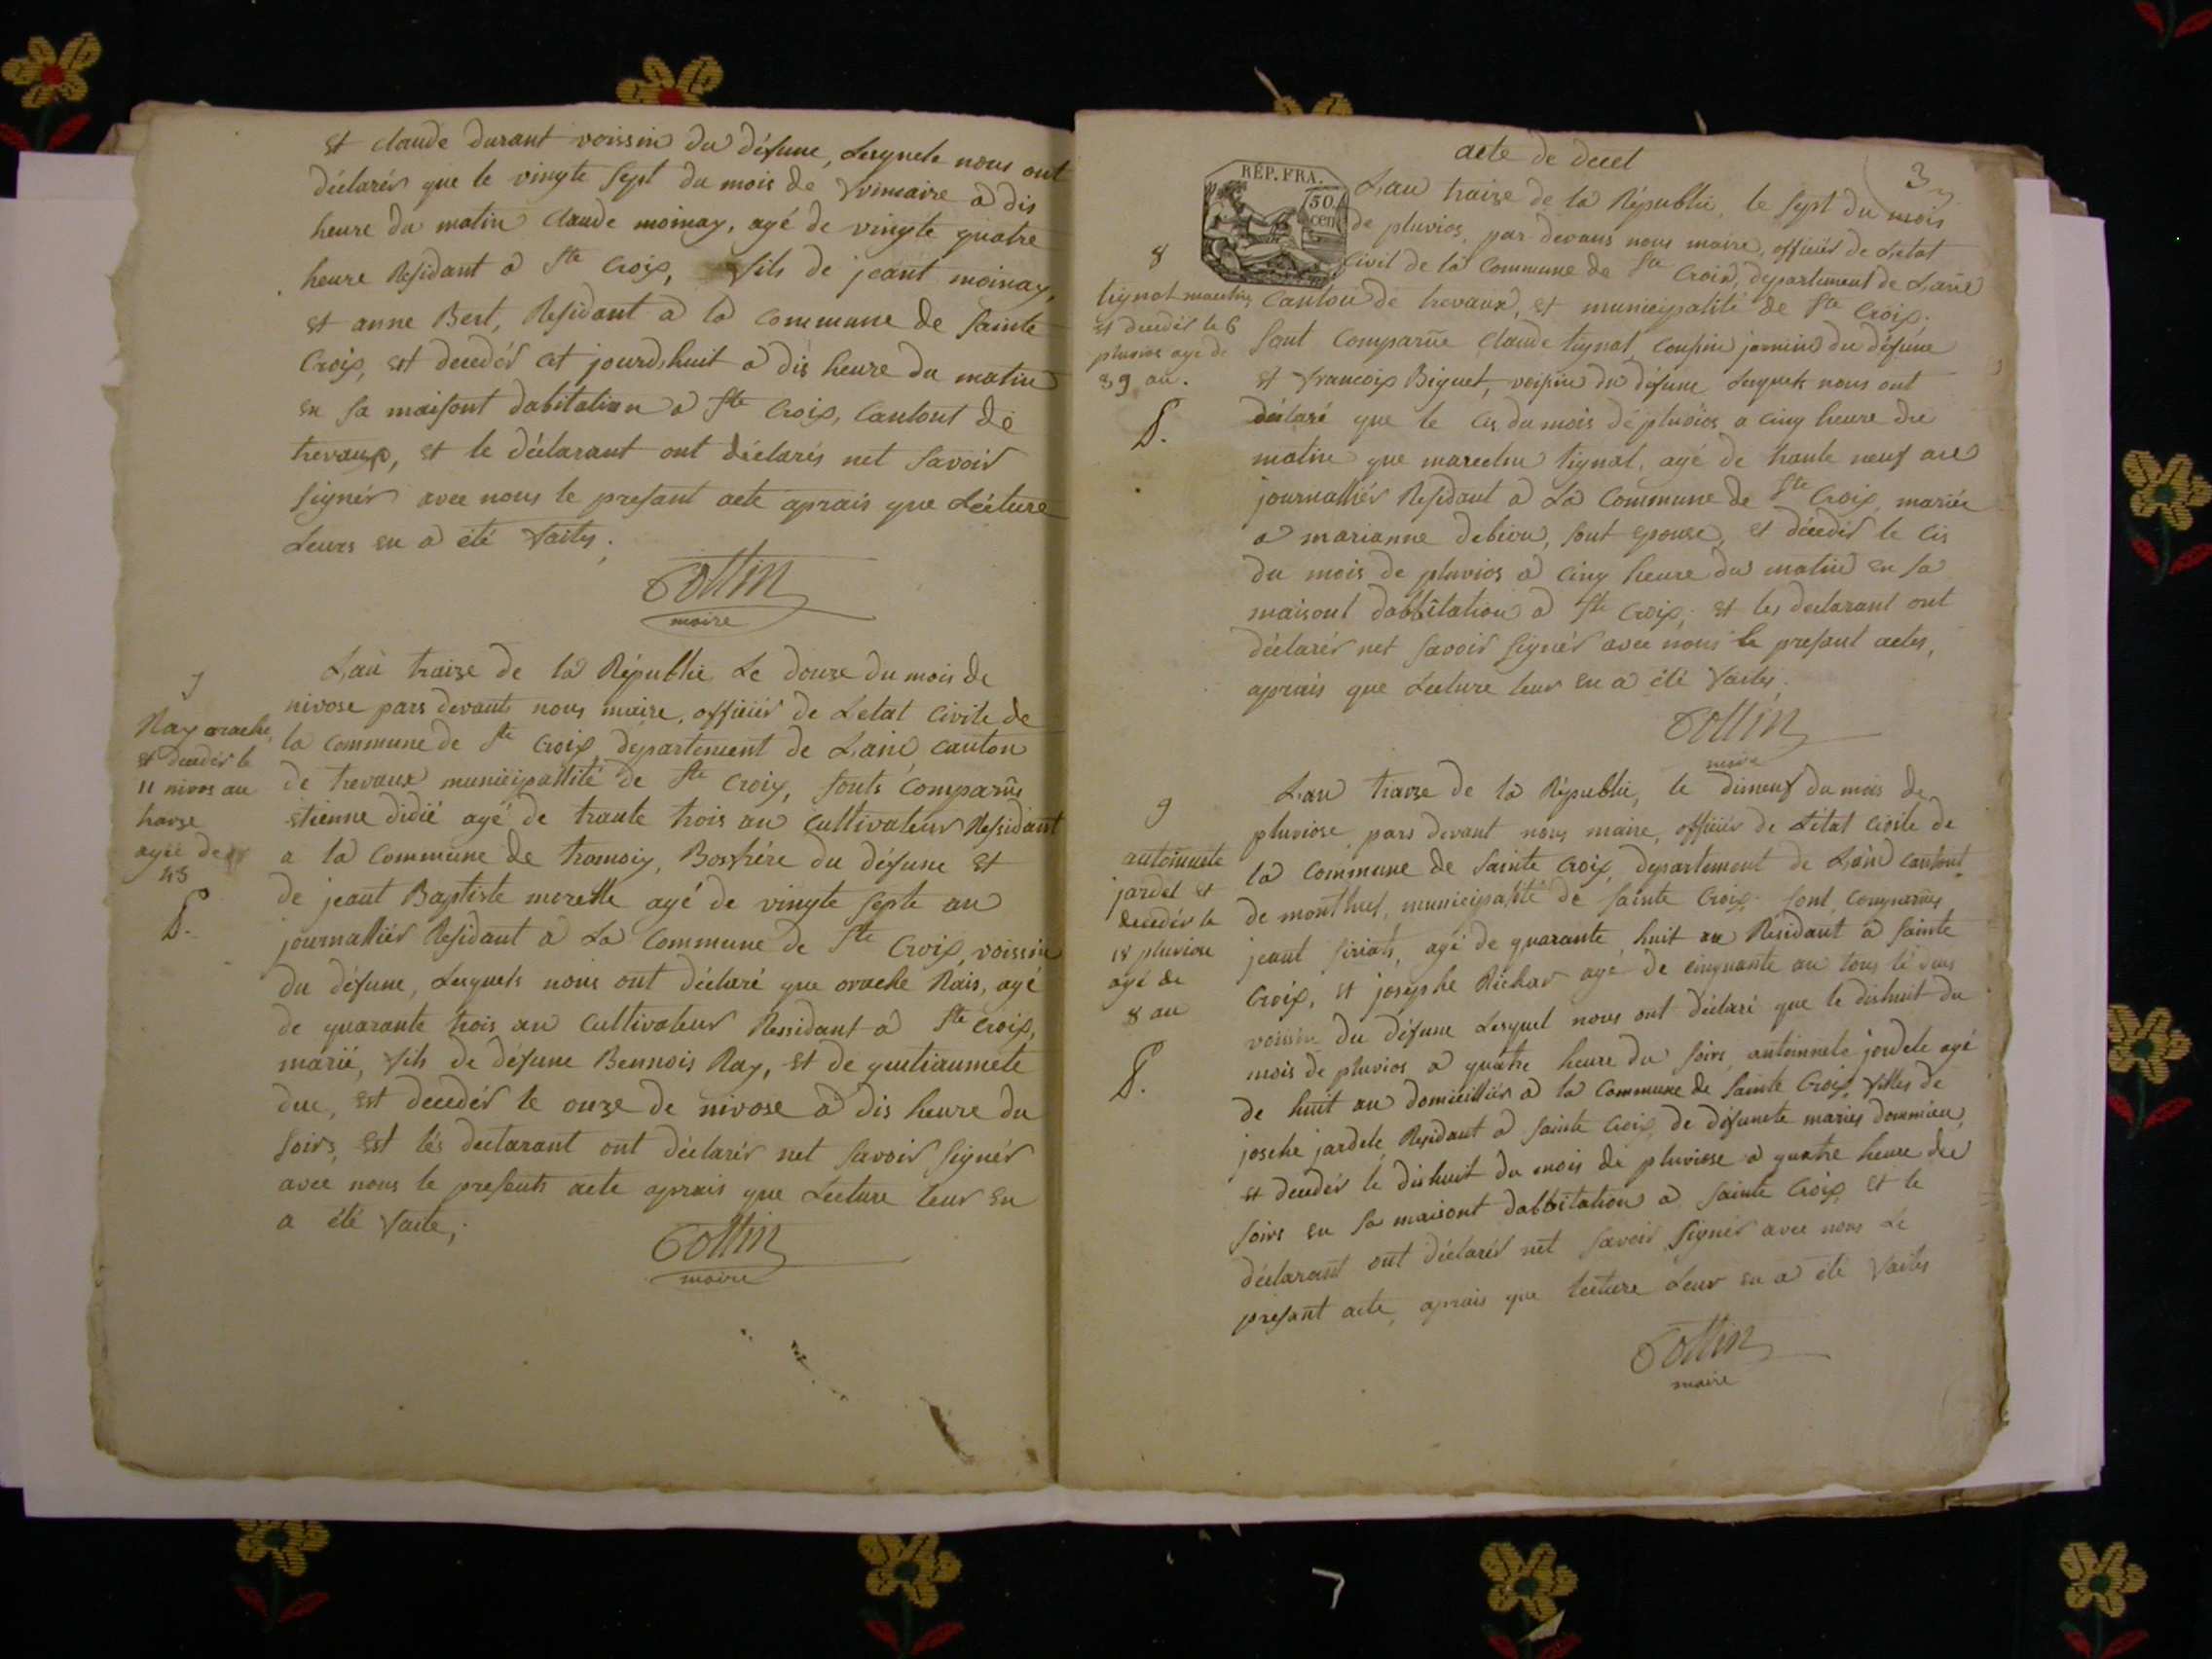 et claude durant voissin du défunc, Lesquele nous ont
déclarér que le vingte sept du mois de vrimaire a dis
heure du matin claude moinay, agé de vingte quatre
heure Residant a Ste Croix, fils de jeant moinay,
et anne Bert, Residant a la commune de Sainte
Croix, est decedér cet jourdhuit a dis heure du matin
en sa maisont dabitation a Ste Croix, Cantont de
trevoux, et le déclarant ont déclarés net savoir
signér avec nous le presant acte aprais que Lecture
Leurs en a été vaites;
Cottin
maire
7
Ray orache,
et decedér le
11 nivos an
traize
agée de
43
D.
Lan traize de la Républic Le douze du mois de
nivose pars devants nous maire, officiér de Letat civile de
la commune de Ste Croix, departement de Lain, canton
de trevoux municipallité de Ste Croix, sonts Comparus
etienne didié agé de trante trois an cultivateur Ressidant
a la commune de tramoiy, Bosfrére du défunc et
de jeant Baptiste morelle agé de vingte septe an
journalliér Residant a La Commune de Ste Croix, voissin
du défunc, Lesquels nous ont déclaré que orache Rais, agé
de quarante trois an cultivateur Ressidant a Ste Croix,
marié, fils de défunc Bennois Ray, et de
duc, est decedér le onze de nivose a dis heure du
soirs, est lés declarant ont déclarér net savoir signér
avec nous le presents acte aprais que Lecture leur en
a été vaite;
Cottin
maire
3
acte de decet
RÉP. FRA.
50 cen
8
tignat
et decedér le 6
pluvios agé de
39 an.
D.
Lan traize de la Républic, le sept du mois
de pluvios, par devans nous maire, officiér de Letat
Civil de la Commune de Ste Croix, departement de Lain
Canton de trevoux, et municipalité de Ste Croix,
sont comparue claude tignat, coupin jermin du défunc
et francoix Biguet, voipin du défunc Lesquels nous ont
déclaré que le cis du mois dé pluvios a cinq heure du
matin que tignat, agé de trante neuf an
journalliér Residant a La Commune de Ste Croix, mariée
a marianne debiou, sont epouse, et décedér le cis
du mois de pluvios a cinq heure du matin en sa
maisont dabbitation a Ste Croix; et les declarant ont
déclarér net savoir signér avec nous le presant actes,
aprais que Lecture leur en a été vaites;
Cottin
maire
9
jardet et
decedér le
18 pluviose
agé de
8 an
D.
Lan traize de la Républic, le dineuf du mois de
pluviose, pars devant nous maire, officiér de Létat civile de
la Commune de Sainte Croix, departement de Lain cantont
de montluel, municipalité de Sainte Croix, sont comparues
jeant siriat, agé de quarante huit an Résidant a Sainte
Croix, et josephe Richar agé de cinquante an tous lé deus
voissin du défunc Lesquel nous ont déclaré que le dishuit du
mois de pluvios a quatre heure du soirs, antoinnete jardele agé
de huit an domicilliér a la Commune de Sainte Croix, villes de
josehe jardele, Residant a Sainte Croix, de défuncte maries dommieu,
et decedér le dishuit du mois de pluviose a quatre heure du
soirs en sa maisont dabbitation a Sainte Croix, et le
déclarant ont déclarér net savoir signér avec nous Le
presant acte, aprais que lecture Leur en a été vaites
Cottin
maire